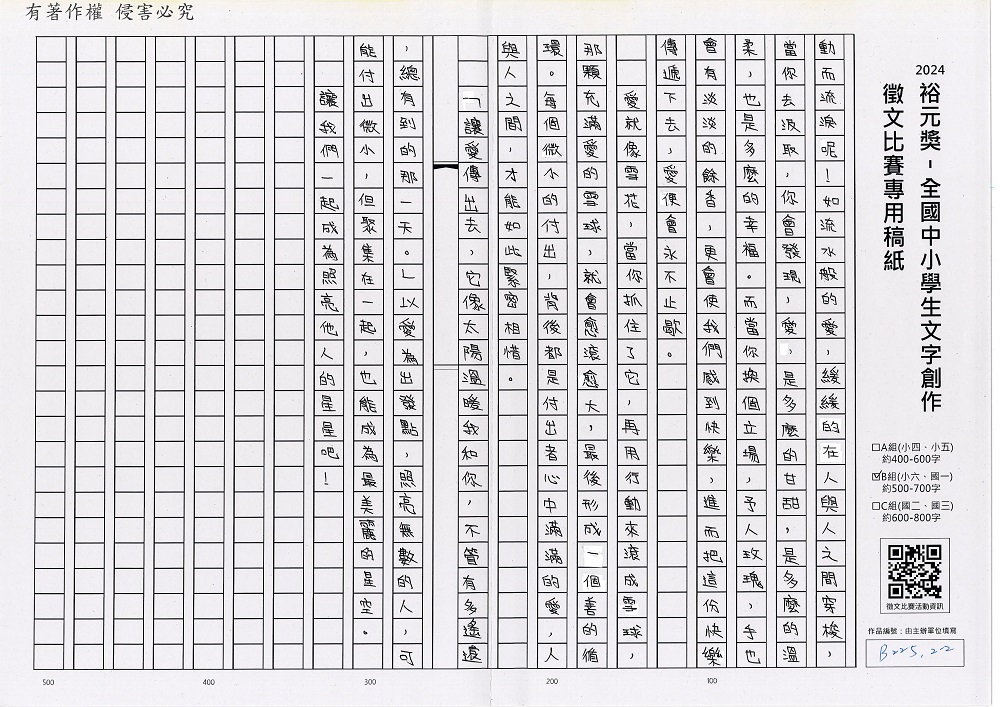 有著作權 侵害必究
2024
裕元獎-全國中小學生文字創作
徵文比賽專用稿紙
□A組(小四、小五)
約400-600字
☑B組(小六、國一)
約500-700字
□C組(國二、國三)
約600-800字
徵文比賽活動資訊
作品編號:由主辦單位填寫
B225,22
動而流淚呢!如流水般的愛,緩緩的在人與人之間穿梭,
當你去汲取,你會發現,愛,是多麼的甘甜,是多麼的溫
柔,也是多麼的幸福。而當你換個立場,予人玫瑰,手也
會有淡淡的餘香,更會使我們感到快樂,進而把這份快樂
傳遞下去,愛便會永不止歇。
愛就像雪花,當你抓住了它,再用行動來滾成雪球,
那顆充滿愛的雪球,就會愈滾愈大,最後形成一個善的循
環。每個微小的付出,背後都是付出者心中滿滿的愛,人
與人之間,才能如此緊密相惜。
「讓愛傳出去,它像太陽溫暖我和你,不管有多遙遠
,總有到的那一天。」以愛為出發點,照亮無數的人,可
能付出微小,但聚集在一起,也能成為最美麗的星空。
讓我們一起成為照亮他人的星星吧!
100
200
300
400
500